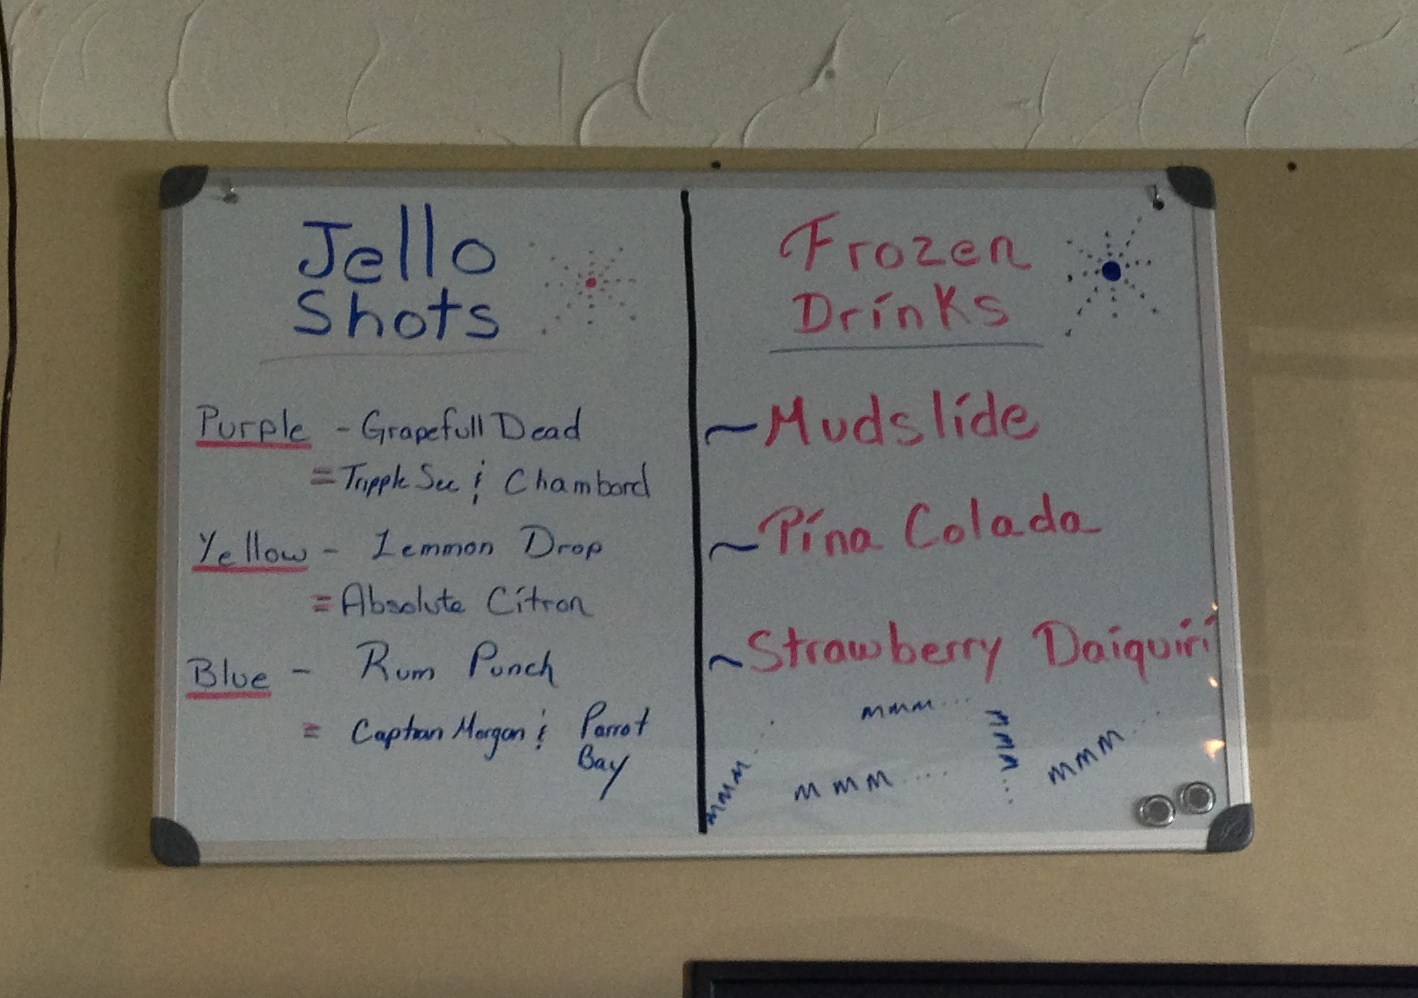 Jello
Shots
Purple - Grapefull Dead
= Tripple Sec & Chambord
Yellow - Lemmon Drop
= Absolute Citron
Blue - Rum Punch
= Captian Morgan & Parrot
Bay
Frozen
Drinks
~ Mudslide
~ Pina Colada
~ Strawberry Daiquiri
mmm...
mmm....
mmm....
mmm...
mmm...